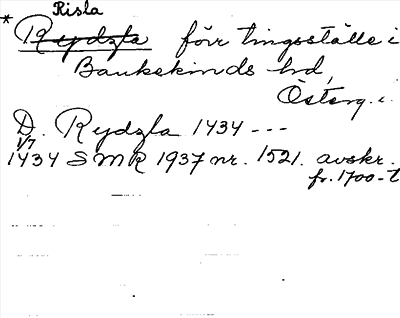 Risla
* Rydzla förr tingsställe i
Bankekinds hd,
Österg.
D. Rydzla 1434 ---
1/7
1434 SMR 1937 nr. 1521. avskr.
fr. 1700-t